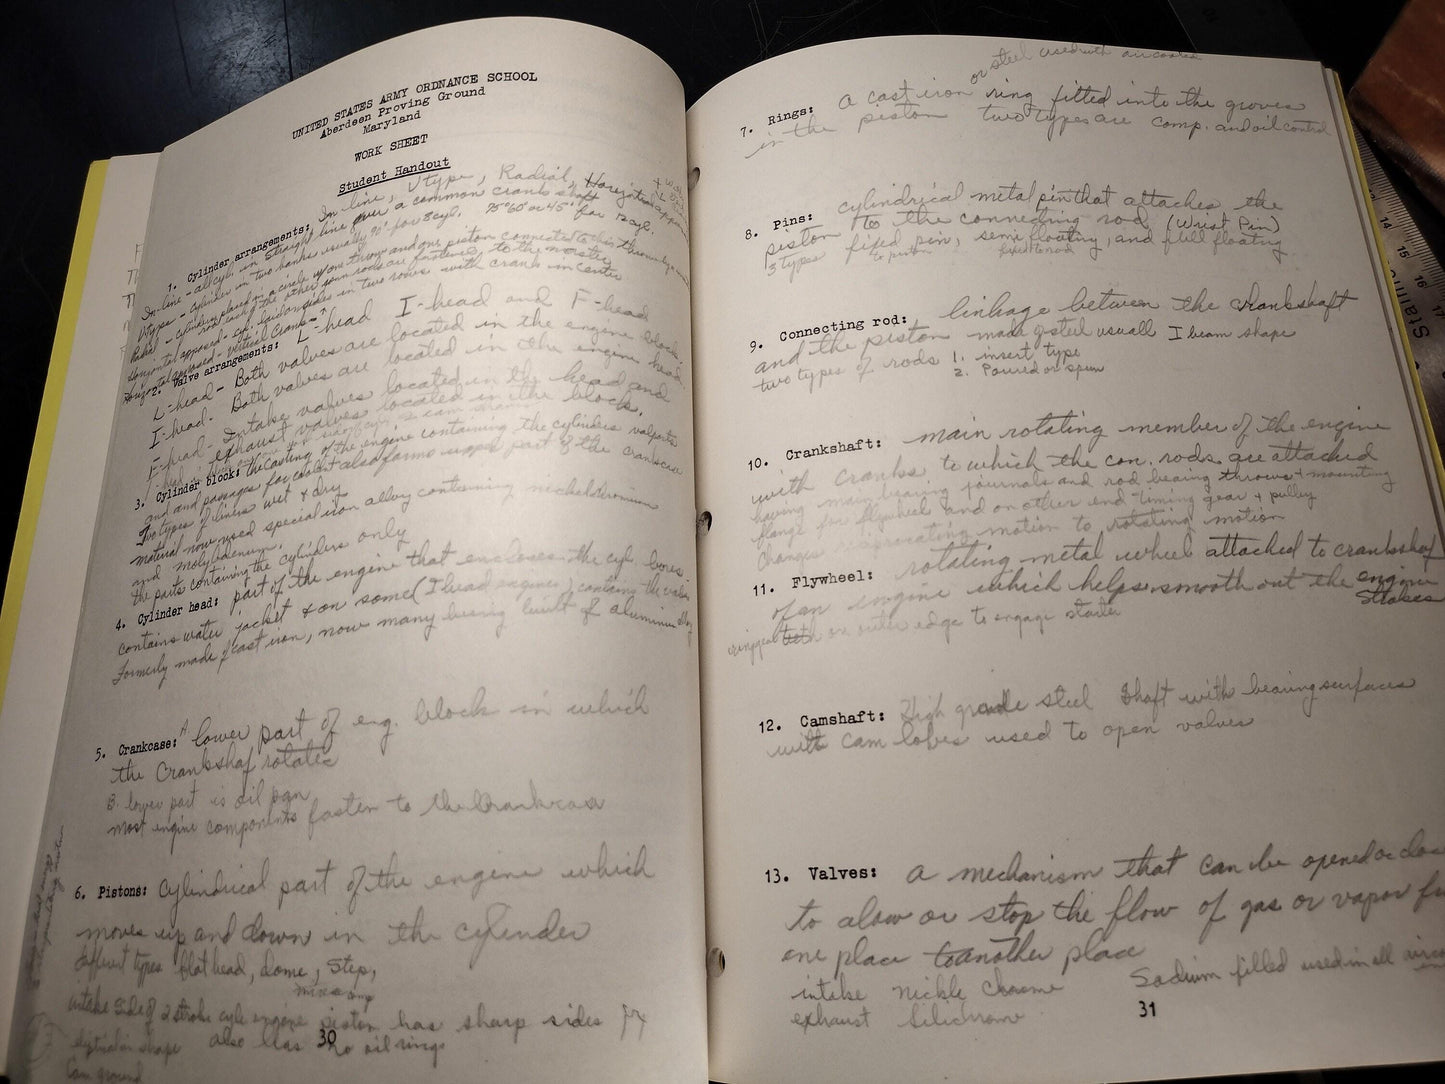 UNITED STATES ARMY ORDNANCE SCHOOL
Aberdeen Proving Ground
Maryland
WORK SHEET
Student Handout
1. Cylinder arrangements: In line, V type, Radial, Horizontal opposed
In-line - all cyl. in straight line over a common crank shaft
V type - cylinder in two banks usually 90° for 8 cyl. 75° 60° or 45° for 12 cyl.
Radial - cylinders placed in a circle w/one throw and one piston connected to this throw by a master
rod each of the other rods are fastened to the master
Horizontal opposed - cyl. laid on sides in two rows with crank in center
Horizontal opposed - vertical Crank - ?
2. Valve arrangements: L-head I-head and F-head
L-head - Both valves are located in the engine block.
I-head - Both valves are located in the engine head.
F-head - Intake valves located in the head and
exhaust valves located in the block.
3. Cylinder block: the casting of the engine containing the cylinders valports
and passages for coolant also forms upper part of the crankcase
Two types of liners wet & dry
material now used special iron alloy containing nickel chromium
and molybdenum.
the parts containing the cylinders only
4. Cylinder head: part of the engine that encloses the cyl bores -
contains water jacket & on some (I head engines) contains the valves
Formerly made of cast iron, now many bearing built of aluminum alloy
5. Crankcase: A lower part of eng. block in which
the Crankshaf rotates
B. lower part is oil pan
most engine components fasten to the Crankcase
6. Pistons: Cylindrical part of the engine which
moves up and down in the cylinder
different types flat head, dome, step,
intake side of 2 stroke cycle engine piston has sharp sides
shape also has no oil rings
Cam ground
30
or steel used with air cooled
7. Rings: A cast iron ring fitted into the groves
in the piston two types are comp. and oil control
8. Pins: cylindrical metal pin that attaches the
piston to the connecting rod (Wrist Pin)
3 types fixed pin, semi floating, and full floating
to piston fixed to rod
9. Connecting rod: linkage between the crankshaft
and the piston made of steel usuall I beam shape
two types of rods 1. insert type
2. Poured or spun
10. Crankshaft: main rotating member of the engine
with cranks to which the con. rods are attached
having main bearing journals and rod bearing throws & mounting
flange for flywheel and on other end timing gear & pulley
changes reciprocating motion to rotating motion
11. Flywheel: rotating metal wheel attached to crankshaf
of an engine which helps smooth out the engine
ring gear teeth on outer edge to engage starter
12. Camshaft: High grade steel shaft with bearing surfaces
with cam lobes used to open valves
13. Valves: A mechanism that can be opened or close
to alow or stop the flow of gas or vapor
one place to another place
intake nickle chrome Sodium filled used in all
exhaust silichrome
31
14
15
16
17